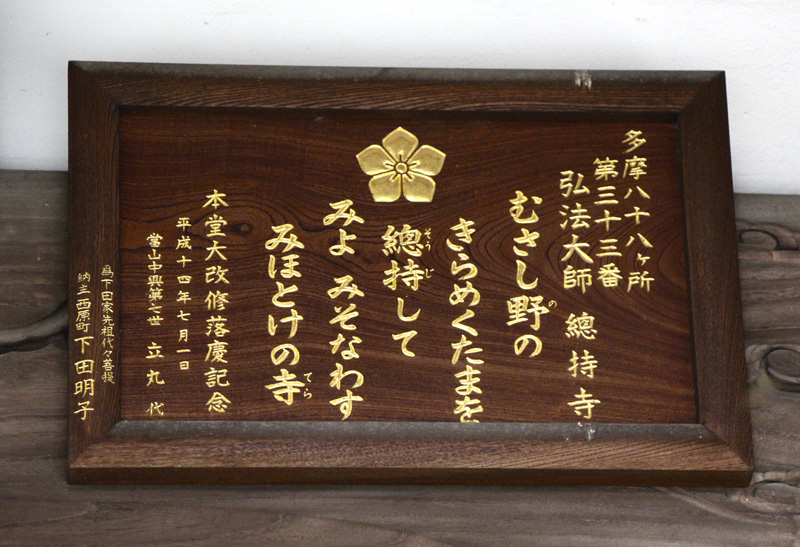 多摩八十八ヶ所
第三十三番
弘法大師 總持寺
むさし野の
の
きらめくたまを
總持して
そうじ
みよ みそなわす
みほとけの寺
てら
本堂大改修落慶記念
平成十四年七月一日
當山中興第七世 立丸 代
為下田家先祖代々菩提
納主 西原町 下田明子